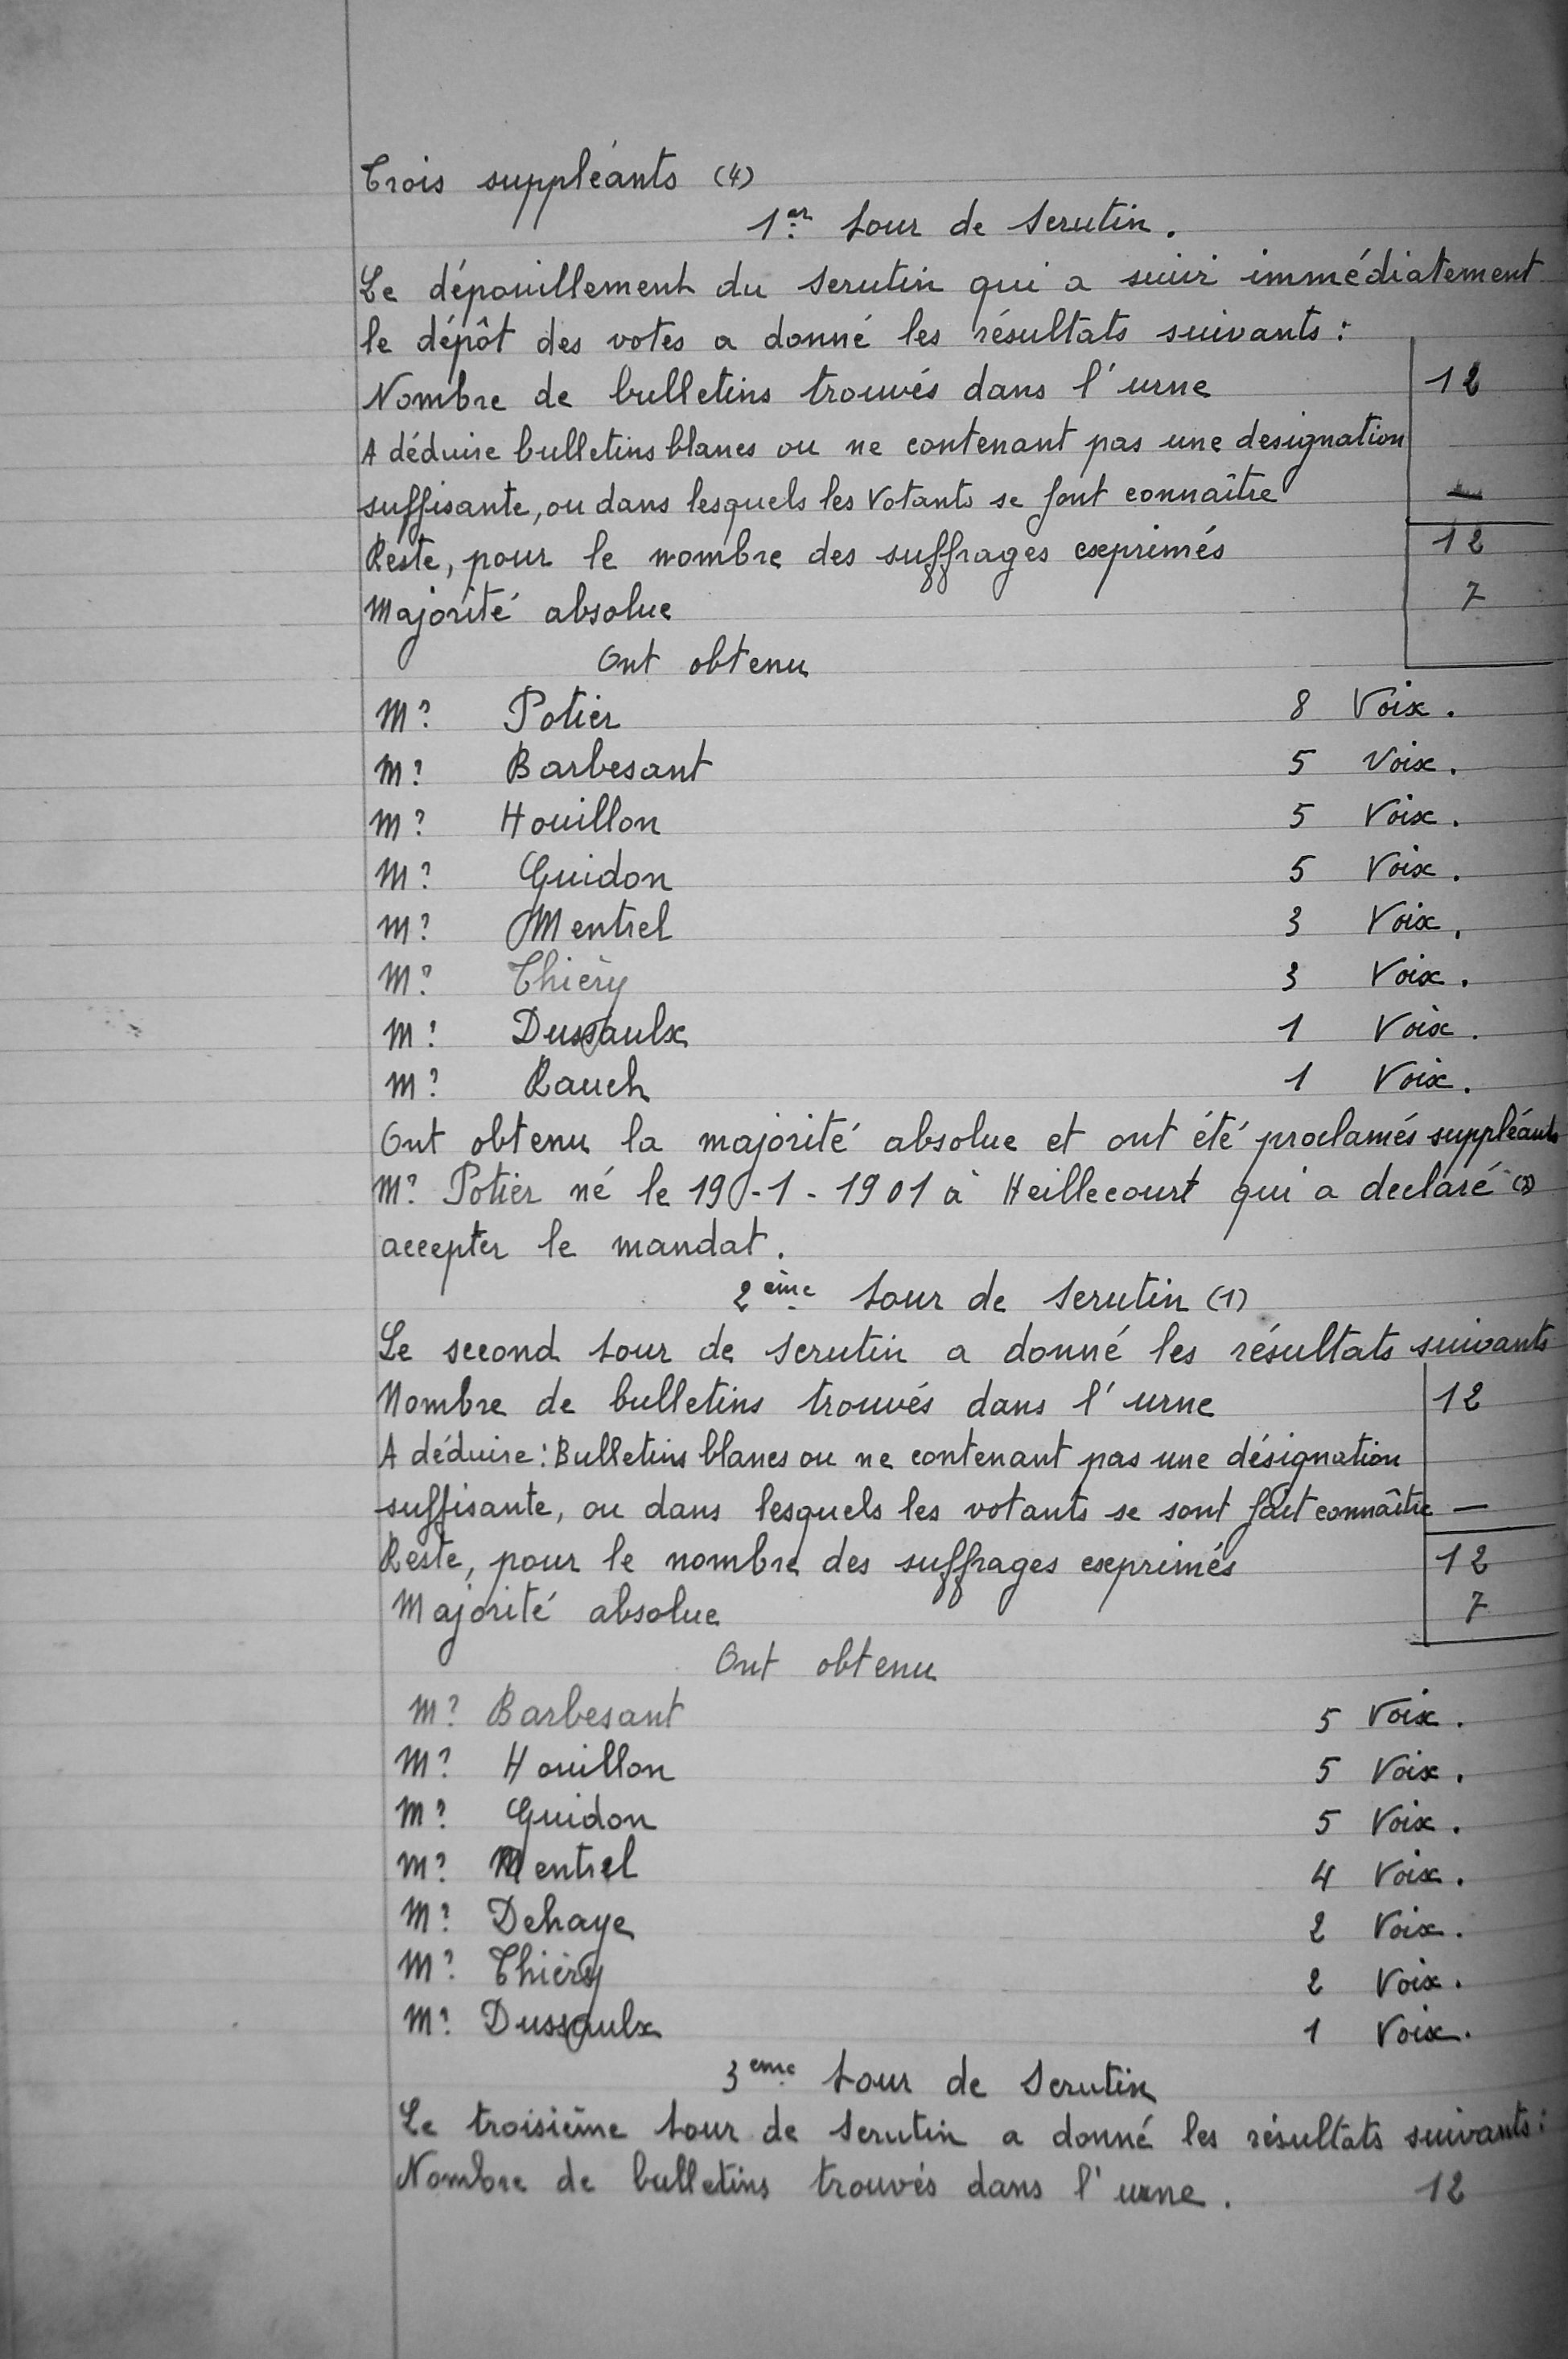 Trois suppléants (4)
1er tour de scrutin.
Le dépouillement du scrutin qui a suivi immédiatement
le dépôt des votes a donné les résultats suivants :
Nombre de bulletins trouvés dans l'urne 12
A déduire bulletins blancs ou ne contenant pas une designation
suffisante, ou dans lesquels les Votants se font connaître —
Reste, pour le nombre des suffrages exprimés 12
Majorité absolue 7
Ont obtenu
Mr Potier 8 Voix.
Mr Barbesant 5 Voix.
Mr Houillon 5 Voix.
Mr Guidon 5 Voix.
Mr Mentrel 3 Voix.
Mr Thiéry 3 Voix.
Mr Dussaulx 1 Voix.
Mr Rauch 1 Voix.
Ont obtenu la majorité absolue et ont été proclamés suppléants
Mr Potier né le 19-1-1901 à Heillecourt qui a declaré
accepter le mandat.
2ème tour de scrutin (1)
Le second tour de scrutin a donné les résultats suivants
Nombre de bulletins trouvés dans l'urne 12
A déduire : Bulletins blancs ou ne contenant pas une désignation
suffisante, ou dans lesquels les votants se sont fait connaître —
Reste, pour le nombre des suffrages exprimés 12
Majorité absolue 7
Ont obtenu
Mr Barbesant 5 Voix.
Mr Houillon 5 Voix.
Mr Guidon 5 Voix.
Mr Mentrel 4 Voix.
Mr Dehaye 2 Voix.
Mr Thiéry 2 Voix.
Mr Dussaulx 1 Voix.
3eme tour de scrutin
Le troisième tour de scrutin a donné les résultats suivants :
Nombre de bulletins trouvés dans l'urne. 12